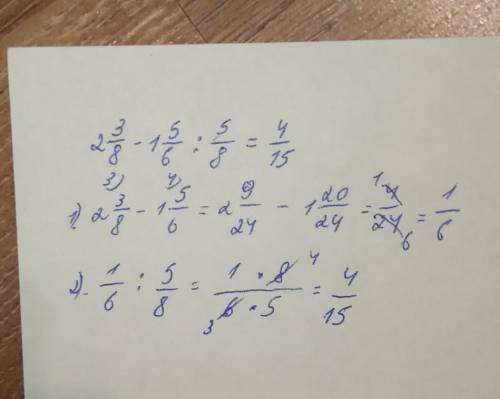 2 3/8 - 1 5/6 : 5/8 = 4/15
1) 2 3/8 3) - 1 5/6 4) = 2 9/24 - 1 20/24 = 4/24 1 6 = 1/6
2) 1/6 : 5/8 = 1 * 8 4 / 3 6 * 5 = 4/15